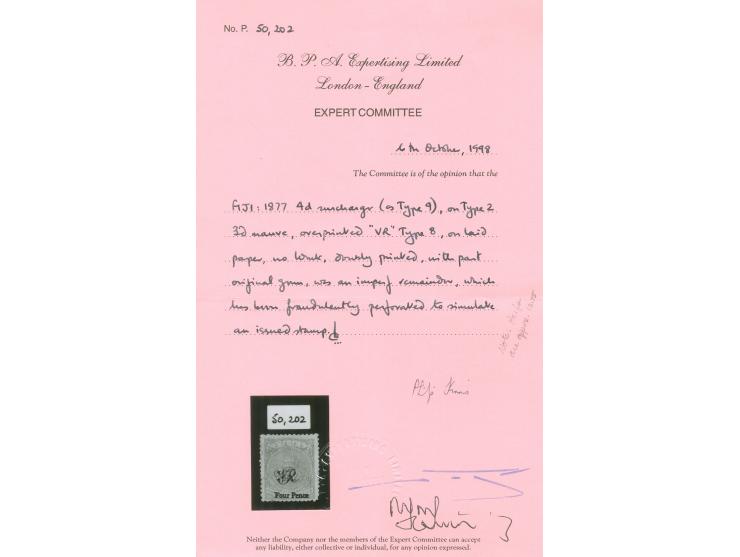 No. P. 50,202
B. P. A. Expertising Limited
London - England
EXPERT COMMITTEE
6th October, 1998
The Committee is of the opinion that the
FIJI: 1877 4d surcharge (as Type 9), on Type 2
3d mauve, overprinted "VR" Type 8, on laid
paper, no wmk, printed, with part
original gum, was an imperf remainder, which
has been fraudulently perforated to simulate
an issued stamp.
50,202
VR
Four Pence
Neither the Company nor the members of the Expert Committee can accept
any liability, either collective or individual, for any opinion expressed.